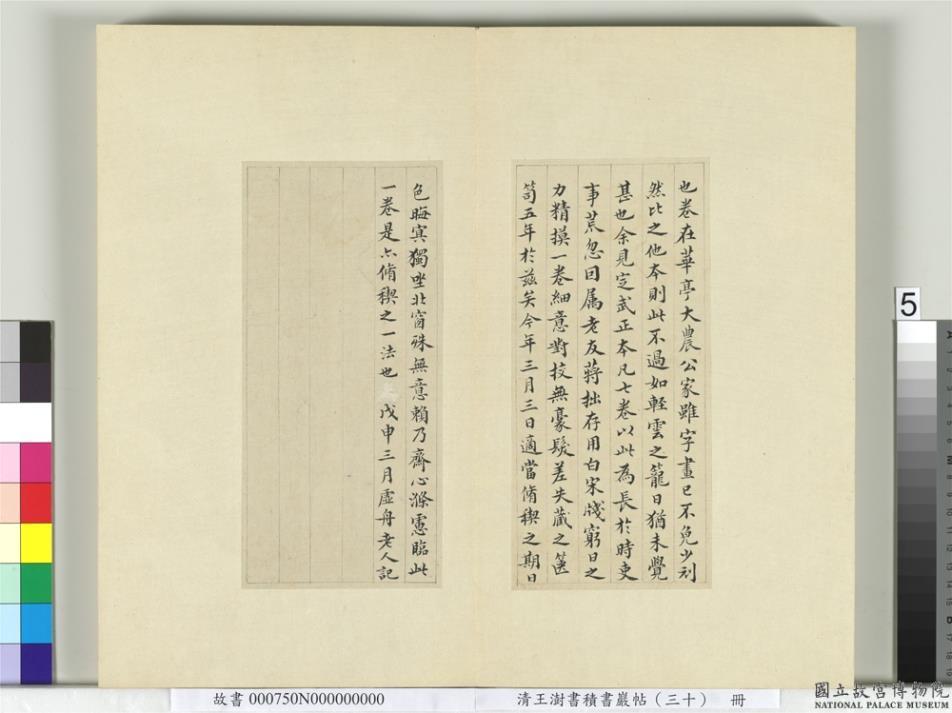 也卷在華亭大農公家雖字畫已不免少刓
然比之他本則此不過如輕雲之籠日猶未覺
甚也余見定武正本凡七卷以此為長於時吏
事荒忽因屬老友蔣拙存用白宋牋窮日之
力精摸一卷細意對挍無豪髮差失藏之篋
笥五年於茲矣今年三月三日適當脩稧之期日
色晦寞獨坐北窗殊無意賴乃齊心滌慮臨此
一卷是亦脩稧之一法也 戊申三月虛舟老人記
5
故書 000750N000000000
清王澍書積書巖帖（三十） 冊
國立故宮博物院
NATIONAL PALACE MUSEUM